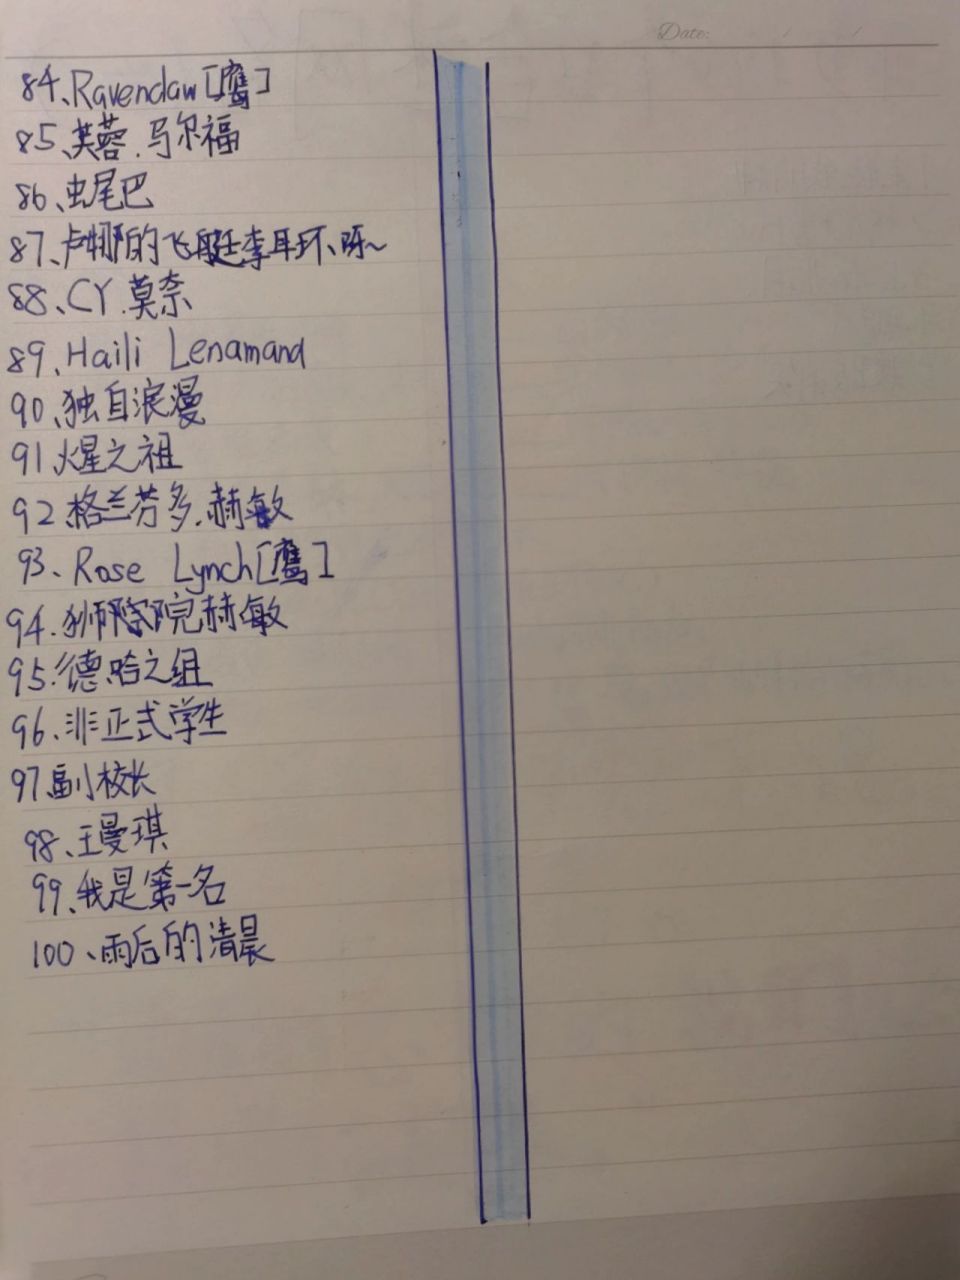 Date: / /
84、Ravenclaw [鹰]
85、芙蓉.马尔福
86、虫尾巴
87、卢娜的飞艇李耳环、呀~
88、CY.莫奈
89、Haili Lenamand
90、独自浪漫
91火星之祖
92.格兰芬多.赫敏
93、Rose Lynch [鹰]
94.狮院赫敏
95.德哈之组
96、非正式学生
97.副校长
98、王曼琪
99、我是第一名
100、雨后的清晨